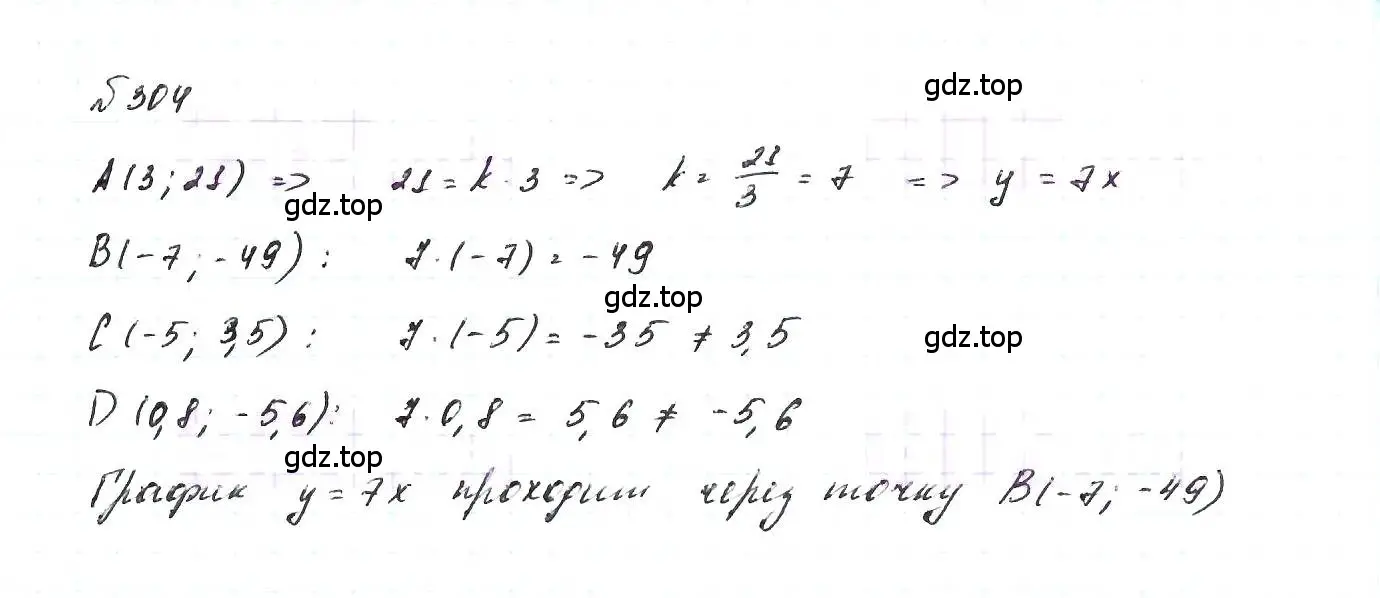 №304
gdz.top
A(3; 21) => 21 = k · 3 => k = 21/3 = 7 => y = 7x
gdz.top
B(-7; -49): 7 · (-7) = -49
gdz.top
C(-5; 3,5): 7 · (-5) = -35 ≠ 3,5
gdz.top
D(0,8; -5,6): 7 · 0,8 = 5,6 ≠ -5,6
gdz.top
График y = 7x проходит через точку B(-7; -49)